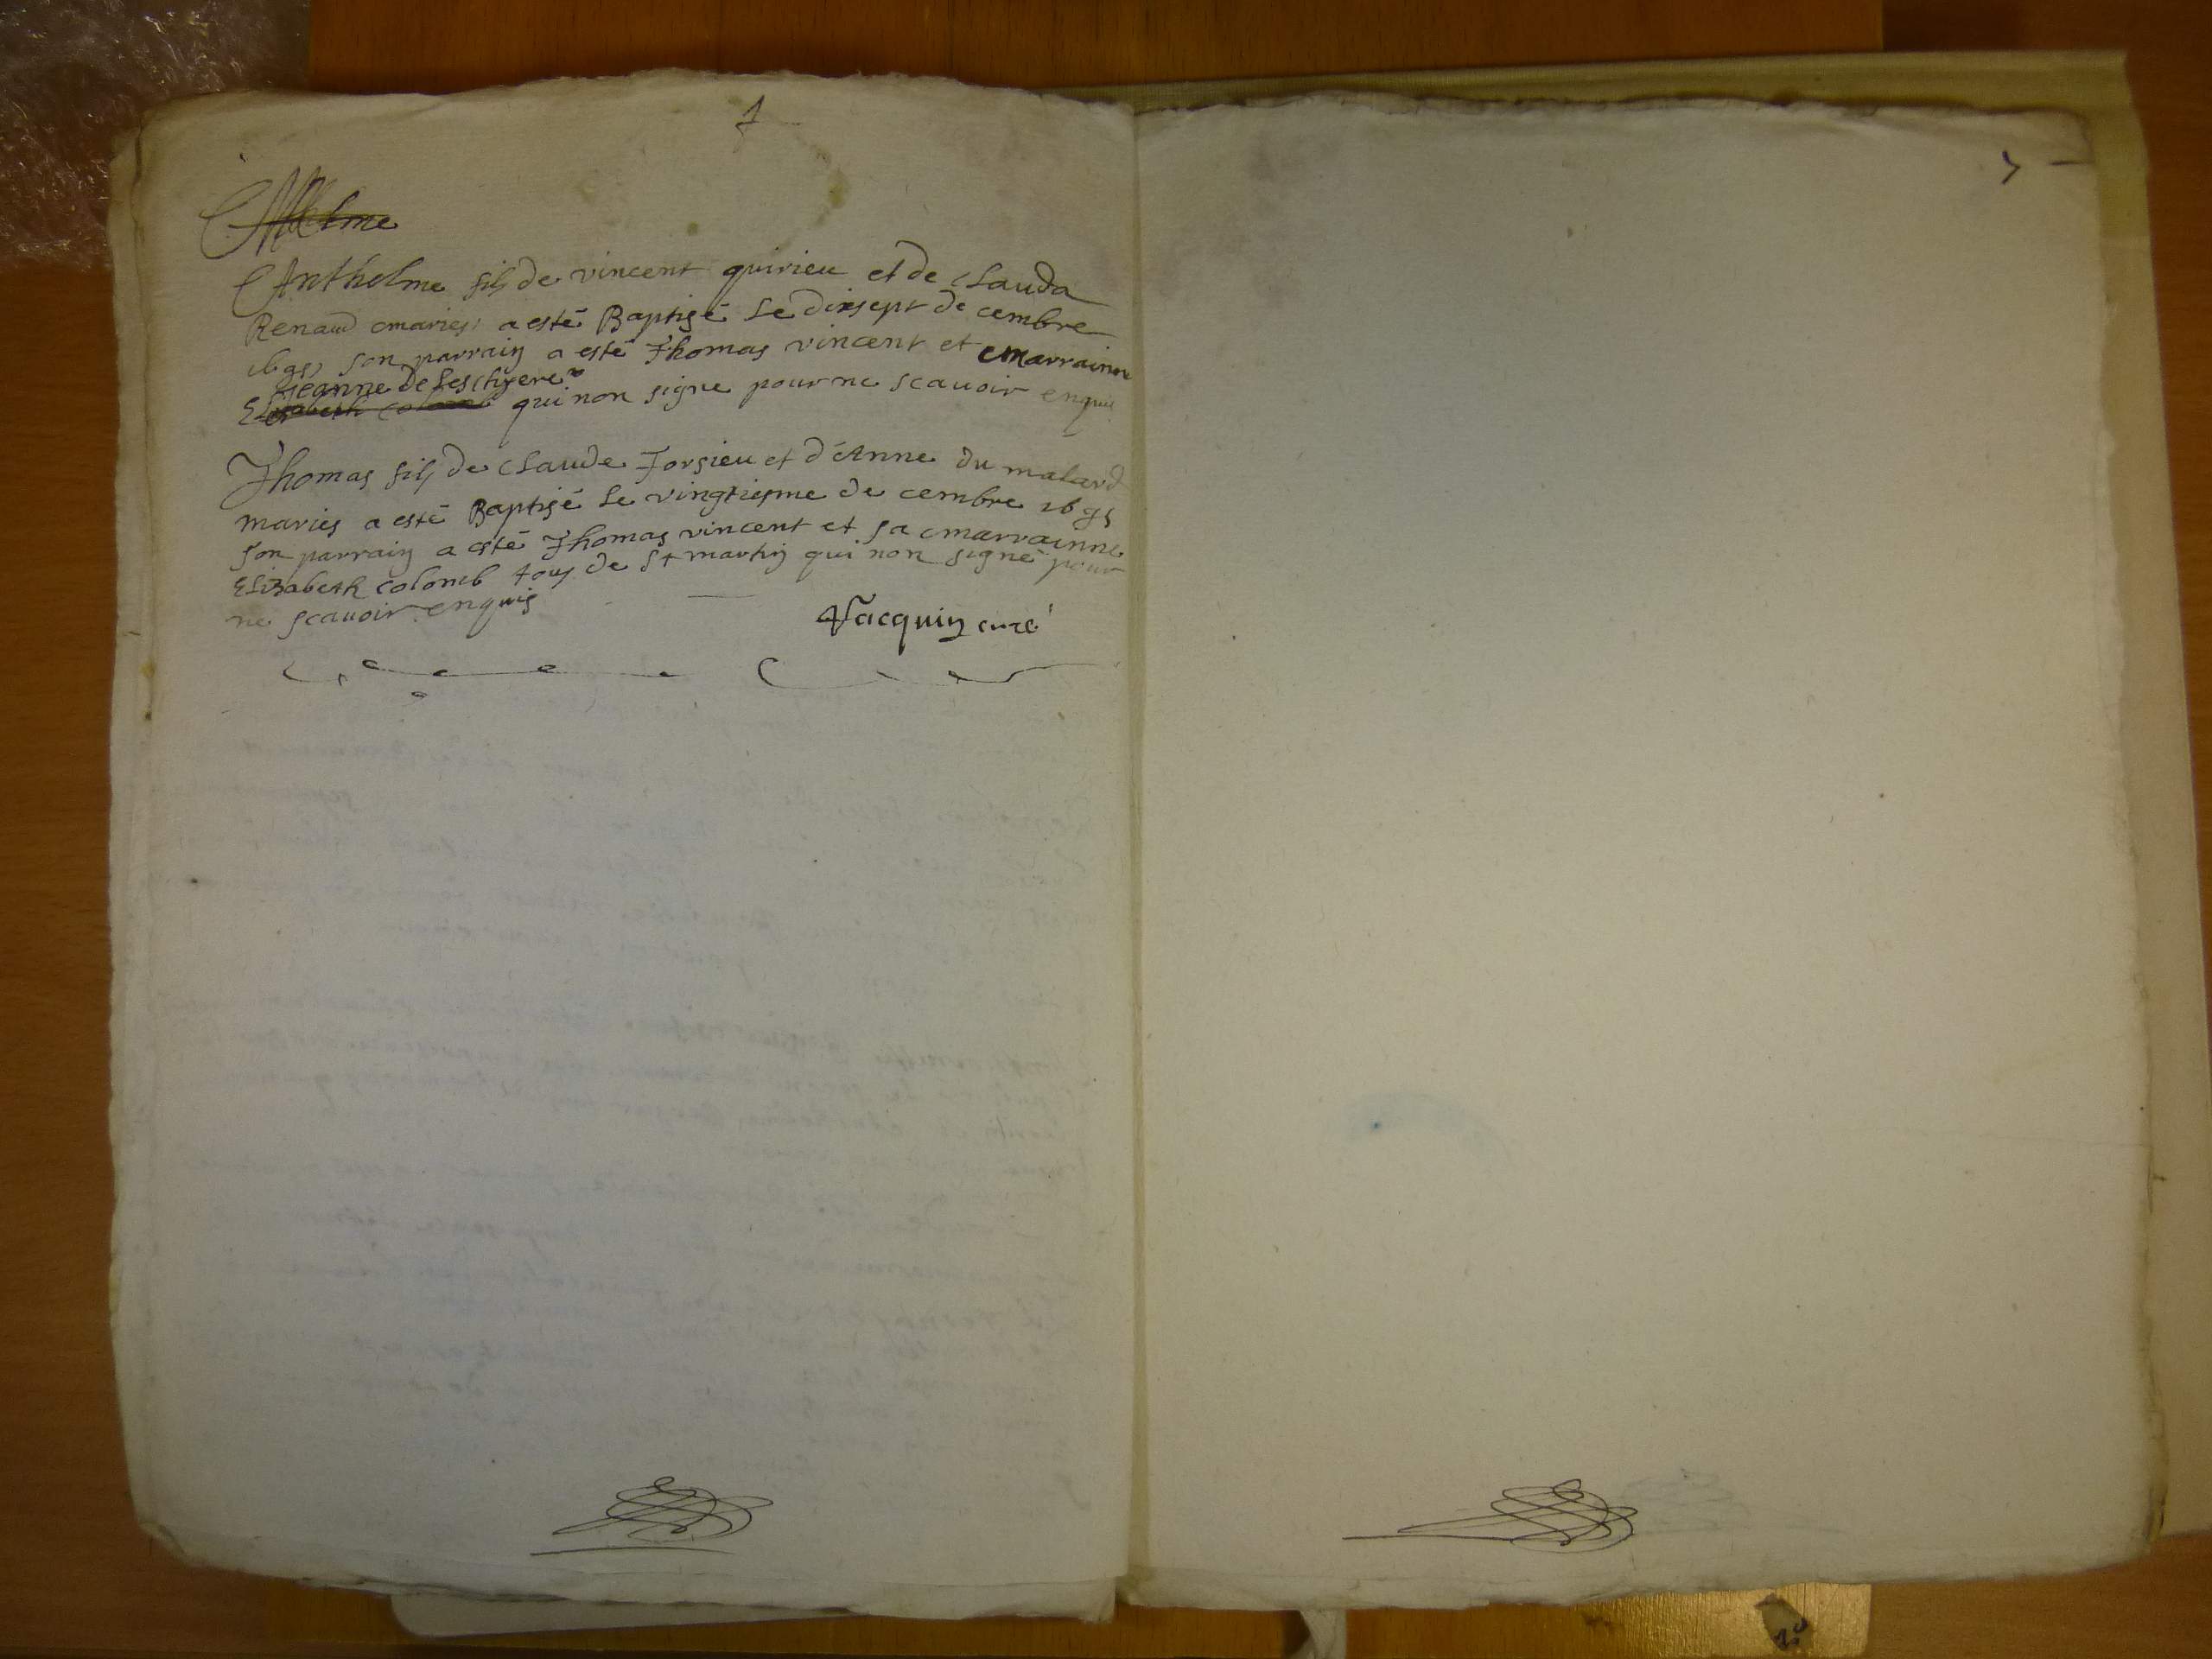 1
Anthelme fils de vincent quirieu et de Clauda
Renaud maries a esté Baptisé le dixsept decembre
son parrain a esté Thomas vincent et marrainne
Jeanne de
Elizabeth colomb qui non signe pour ne scavoir enquis
Thomas fils de Claude Torsieu et d'Anne du malard
maries a esté Baptisé le vingtiesme decembre
son parrain a esté Thomas vincent et sa marrainne
Elizabeth colomb tous de St martin qui non signé pour
ne scavoir enquis
Jacquin curé
7